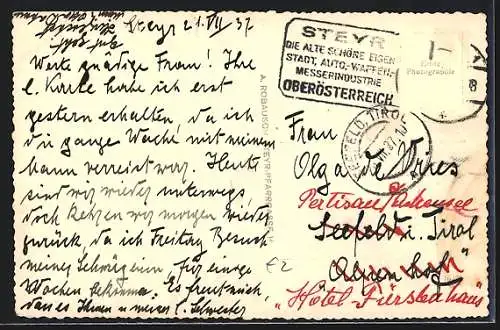 Steyr 21.VII 37
Werte gnädige Frau! Ihre
l. Karte habe ich erst
gestern erhalten, da ich
die ganze Woche mit meinem
Mann verreist war. Heute
sind wir wieder unterwegs
doch kehren wir morgen wieder
zurück, da ich Freitag Besuch
meiner Schwägerin für einige
Wochen bekomme. Es freut mich
dass es Ihnen u meiner l. Schwester
STEYR
DIE ALTE SCHÖNE EISEN
STADT, AUTO-WAFFEN-
MESSERINDUSTRIE
OBERÖSTERREICH
Echte
Photographie
SEEFELD, TIROL
A. ROBAUSCH, STEYR, PFARRGASSE
Frau
Olga de Vries
Pertisau
Seefeld i. Tirol
"Hotel Fürstenhaus"
€2